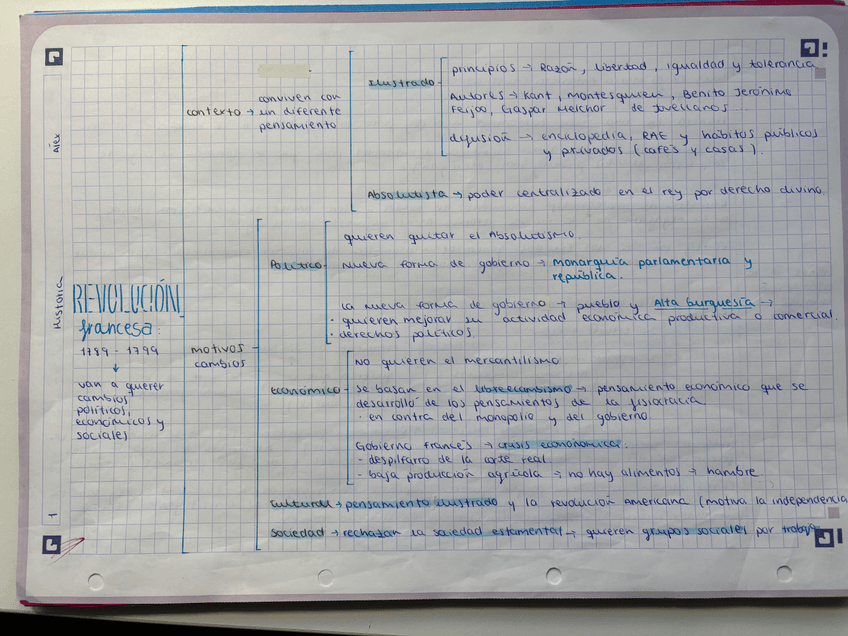 Historia
Alex
1
REVOLUCIÓN
francesa:
1789 - 1799
van a querer
cambios
políticos,
económicos y
sociales
contexto → conviven con
un diferente
pensamiento
Ilustrado
principios → Razón, libertad, igualdad y tolerancia
Autores → Kant, Montesquieu, Benito Jerónimo
Feijoo, Gaspar Melchor de Jovellanos...
difusión → enciclopedia, RAE y hábitos públicos
y privados (cafés y casas).
Absolutista → poder centralizado en el rey por derecho divino.
motivos
cambios
Político
quieren quitar el Absolutismo.
Nueva forma de gobierno → monarquía parlamentaria y
república.
La nueva forma de gobierno → pueblo y Alta burguesía →
· quieren mejorar su actividad económica productiva o comercial.
· derechos políticos.
económico
No quieren el mercantilismo.
se basan en el librecambismo → pensamiento económico que se
desarrolló de los pensamientos de la fisiocracia
· en contra del monopolio y del gobierno.
Gobierno francés → crisis econónomica:
- despilfarro de la corte real.
- baja producción agrícola → no hay alimentos → hambre
cultural → pensamiento ilustrado y la revolución americana (motiva la independencia
sociedad → rechazan la sociedad estamental → quieren grupos sociales por trabajo